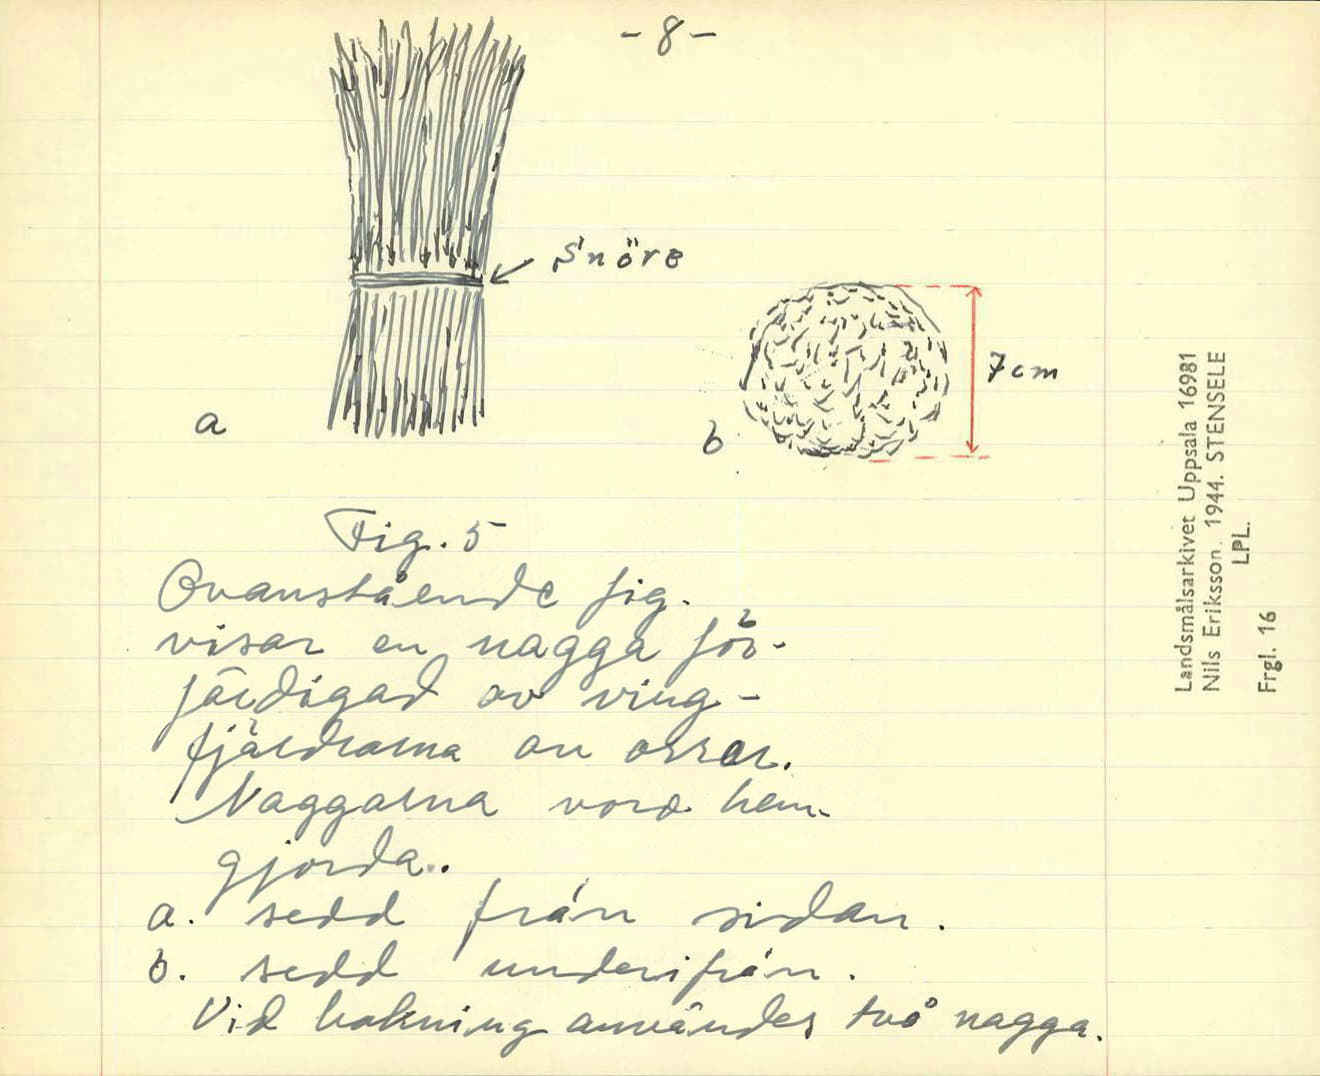 -8-
Snöre
7cm
a
b
Fig. 5
Ovanstående fig.
visar en nagga för-
färdigad av ving-
fjärdrarna av orrar.
Naggarna voro hem-
gjorda.
a. sedd från sidan.
b. sedd underifrån.
Vid bakning användes två nagga.
Landsmålsarkivet Uppsala 16981
Nils Eriksson. 1944. STENSELE
LPL.
Frgl. 16